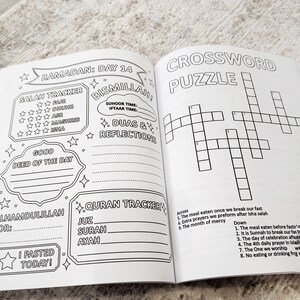 RAMADAN: DAY 14
SALAH TRACKER
FAJR
DHUHR
ASR
MAGHRIB
ISHA
BISMILLAH!
SUHOOR TIME:
IFTAAR TIME:
DUAS &
REFLECTIONS
GOOD
DEED OF THE DAY
ALHAMDULILLAH
FOR:
QURAN TRACKER
JUZ
SURAH
AYAH
I FASTED
TODAY!
CROSSWORD
PUZZLE
Across
The meal eaten once we break our fast
Extra prayers we preform after Isha salah
The month of mercy
Down
1. The meal eaten before fast
2. It is Sunnah to break our fas
3. The day of celebration afte
4. The 4th daily prayer is Salah
7. The One we worship
8. No eating or drinking fr